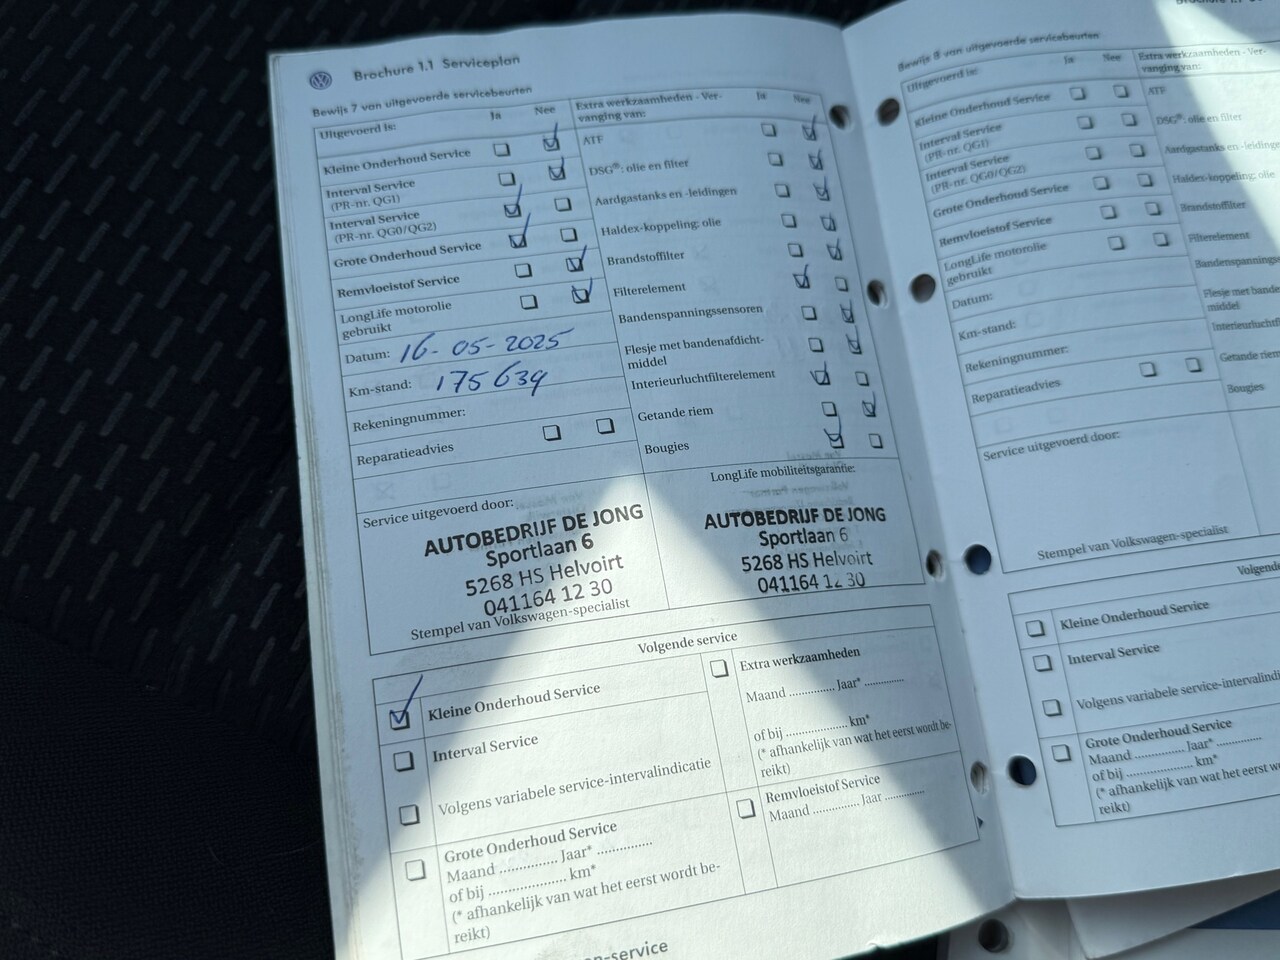 Brochure 1.1 Serviceplan
Bewijs 7 van uitgevoerde servicebeurten
Uitgevoerd is: Ja Nee
Kleine Onderhoud Service
Interval Service
(PR-nr. QG1)
Interval Service
(PR-nr. QG0/QG2)
Grote Onderhoud Service
Remvloeistof Service
LongLife motorolie
gebruikt
Datum: 16-05-2025
Km-stand: 175639
Rekeningnummer:
Reparatieadvies
Extra werkzaamheden - Ver-
vanging van: Ja Nee
ATF
DSG®: olie en filter
Aardgastanks en -leidingen
Haldex-koppeling: olie
Brandstoffilter
Filterelement
Bandenspanningssensoren
Flesje met bandenafdicht-
middel
Interieurluchtfilterelement
Getande riem
Bougies
Service uitgevoerd door:
AUTOBEDRIJF DE JONG
Sportlaan 6
5268 HS Helvoirt
041164 12 30
Stempel van Volkswagen-specialist
LongLife mobiliteitsgarantie:
AUTOBEDRIJF DE JONG
Sportlaan 6
5268 HS Helvoirt
041164 12 30
Volgende service
Kleine Onderhoud Service
Interval Service
Volgens variabele service-intervalindicatie
Grote Onderhoud Service
Maand .............. Jaar* ..............
of bij .................... km*
(* afhankelijk van wat het eerst wordt be-
reikt)
Extra werkzaamheden
Maand .............. Jaar* ..............
of bij .................... km*
(* afhankelijk van wat het eerst wordt be-
reikt)
Remvloeistof Service
Maand .............. Jaar ..............
n-service
Brochure 1.1
Bewijs 8 van uitgevoerde servicebeurten
Uitgevoerd is: Ja Nee
Kleine Onderhoud Service
Interval Service
(PR-nr. QG1)
Interval Service
(PR-nr. QG0/QG2)
Grote Onderhoud Service
Remvloeistof Service
LongLife motorolie
gebruikt
Datum:
Km-stand:
Rekeningnummer:
Reparatieadvies
Extra werkzaamheden - Ver-
vanging van:
ATF
DSG®: olie en filter
Aardgastanks en -leidingen
Haldex-koppeling: olie
Brandstoffilter
Filterelement
Bandenspannings
Flesje met bande
middel
Interieurluchtf
Getande riem
Bougies
Service uitgevoerd door:
Stempel van Volkswagen-specialist
Volgende
Kleine Onderhoud Service
Interval Service
Volgens variabele service-intervalindi
Grote Onderhoud Service
Maand .............. Jaar* ..............
of bij .................... km*
(* afhankelijk van wat het eerst w
reikt)